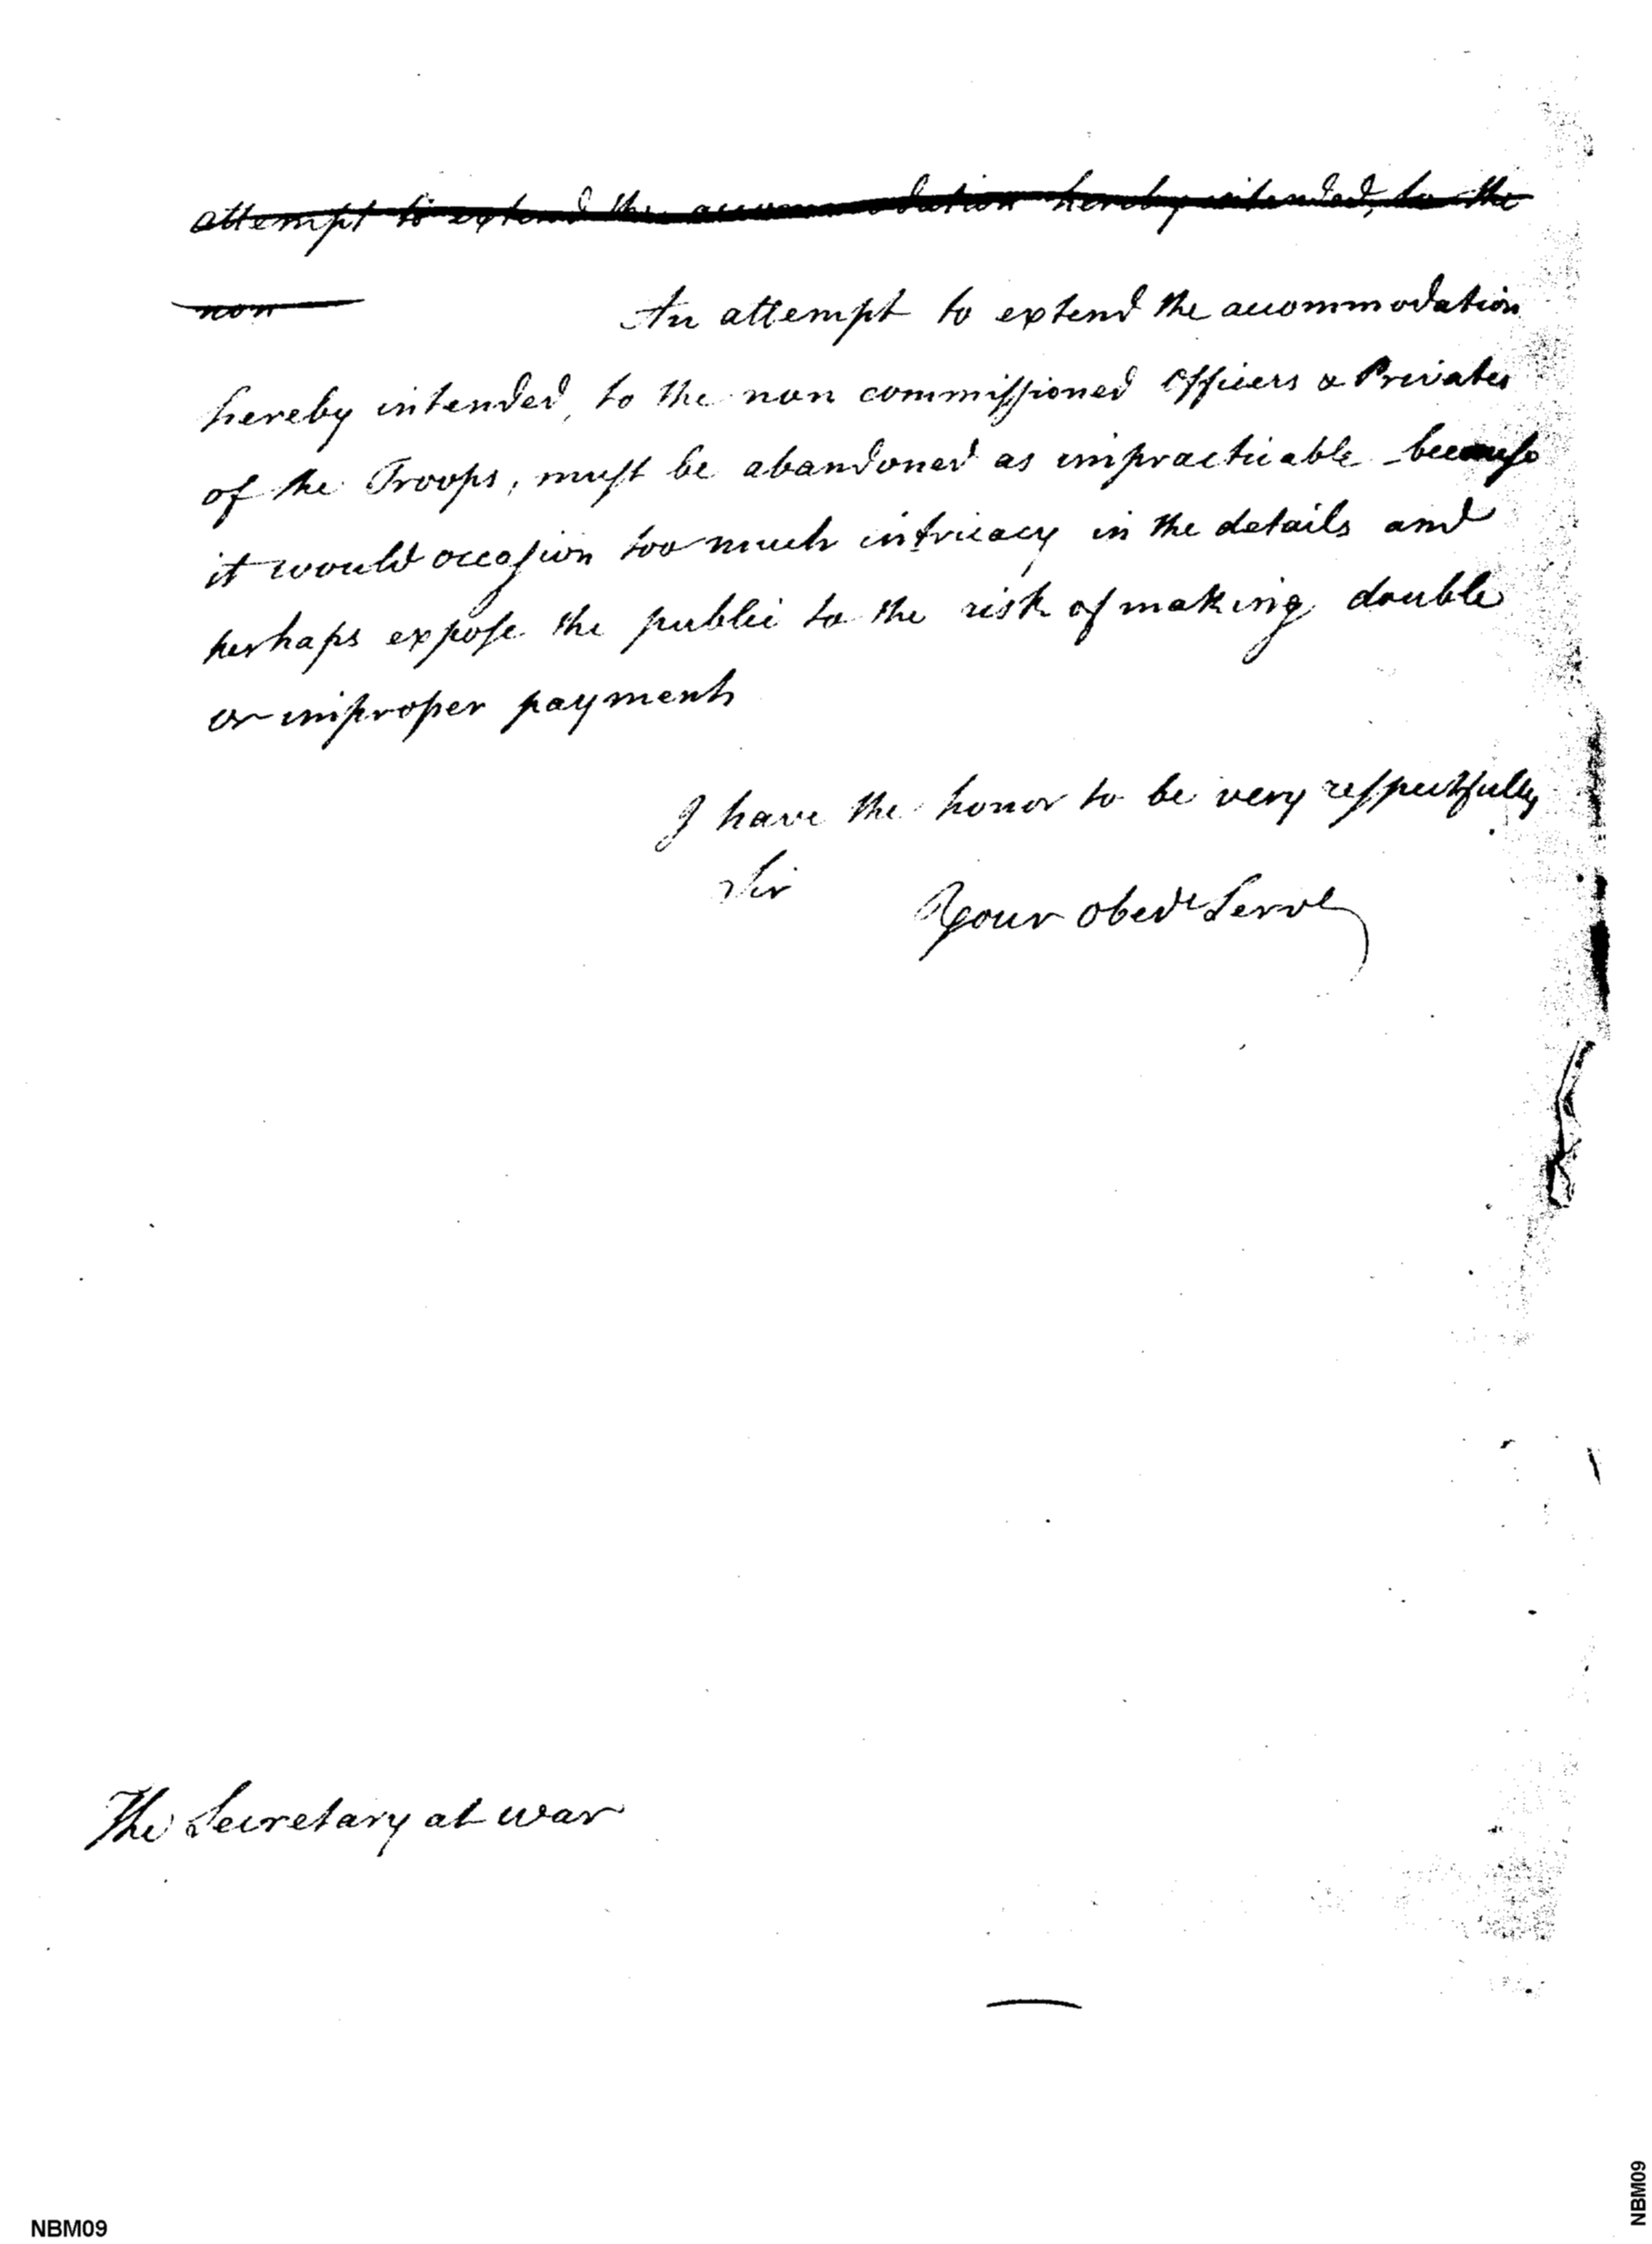 attempt to extend the accommodation hereby intended, to the
non
An attempt to extend the accommodation
hereby intended, to the non commissioned Officers & Privates
of the Troops, must be abandoned as impracticable - because
it would occasion too much intricacy in the details and
perhaps expose the public to the risk of making double
or improper payments
I have the honor to be very respectfully
Sir
Your Obedt Servt
The Secretary at war
NBM09
NBM09